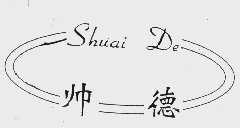 Shuai De
帅德